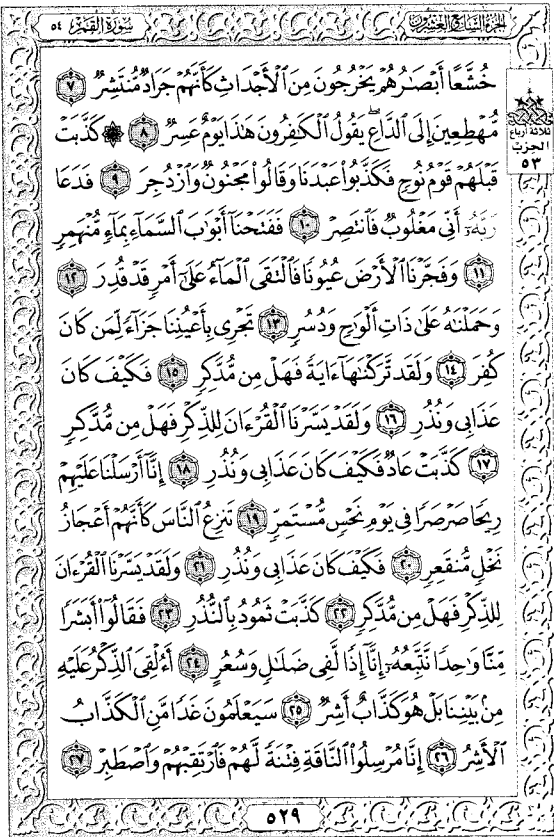 سورة القمر ٥٤
الجزء السابع والعشرون
خُشَّعًا أَبْصَٰرُهُمْ يَخْرُجُونَ مِنَ ٱلْأَجْدَاثِ كَأَنَّهُمْ جَرَادٌ مُّنتَشِرٌ ٧
مُّهْطِعِينَ إِلَى ٱلدَّاعِ ۖ يَقُولُ ٱلْكَٰفِرُونَ هَٰذَا يَوْمٌ عَسِرٌ ٨ ۞ كَذَّبَتْ
قَبْلَهُمْ قَوْمُ نُوحٍ فَكَذَّبُوا۟ عَبْدَنَا وَقَالُوا۟ مَجْنُونٌ وَٱزْدُجِرَ ٩ فَدَعَا
رَبَّهُۥٓ أَنِّى مَغْلُوبٌ فَٱنتَصِرْ ١٠ فَفَتَحْنَآ أَبْوَٰبَ ٱلسَّمَآءِ بِمَآءٍ مُّنْهَمِرٍ
١١ وَفَجَّرْنَا ٱلْأَرْضَ عُيُونًا فَٱلْتَقَى ٱلْمَآءُ عَلَىٰٓ أَمْرٍ قَدْ قُدِرَ ١٢
وَحَمَلْنَٰهُ عَلَىٰ ذَاتِ أَلْوَٰحٍ وَدُسُرٍ ١٣ تَجْرِى بِأَعْيُنِنَا جَزَآءً لِّمَن كَانَ
كُفِرَ ١٤ وَلَقَد تَّرَكْنَٰهَآ ءَايَةً فَهَلْ مِن مُّدَّكِرٍ ١٥ فَكَيْفَ كَانَ
عَذَابِى وَنُذُرِ ١٦ وَلَقَدْ يَسَّرْنَا ٱلْقُرْءَانَ لِلذِّكْرِ فَهَلْ مِن مُّدَّكِرٍ
١٧ كَذَّبَتْ عَادٌ فَكَيْفَ كَانَ عَذَابِى وَنُذُرِ ١٨ إِنَّآ أَرْسَلْنَا عَلَيْهِمْ
رِيحًا صَرْصَرًا فِى يَوْمِ نَحْسٍ مُّسْتَمِرٍّ ١٩ تَنزِعُ ٱلنَّاسَ كَأَنَّهُمْ أَعْجَازُ
نَخْلٍ مُّنقَعِرٍ ٢٠ فَكَيْفَ كَانَ عَذَابِى وَنُذُرِ ٢١ وَلَقَدْ يَسَّرْنَا ٱلْقُرْءَانَ
لِلذِّكْرِ فَهَلْ مِن مُّدَّكِرٍ ٢٢ كَذَّبَتْ ثَمُودُ بِٱلنُّذُرِ ٢٣ فَقَالُوٓا۟ أَبَشَرًا
مِّنَّا وَٰحِدًا نَّتَّبِعُهُۥٓ إِنَّآ إِذًا لَّفِى ضَلَٰلٍ وَسُعُرٍ ٢٤ أَءُلْقِىَ ٱلذِّكْرُ عَلَيْهِ
مِنۢ بَيْنِنَا بَلْ هُوَ كَذَّابٌ أَشِرٌ ٢٥ سَيَعْلَمُونَ غَدًا مَّنِ ٱلْكَذَّابُ
ٱلْأَشِرُ ٢٦ إِنَّا مُرْسِلُوا۟ ٱلنَّاقَةِ فِتْنَةً لَّهُمْ فَٱرْتَقِبْهُمْ وَٱصْطَبِرْ ٢٧
ثلاثة أرباع
الحزب
٥٣
٥٢٩